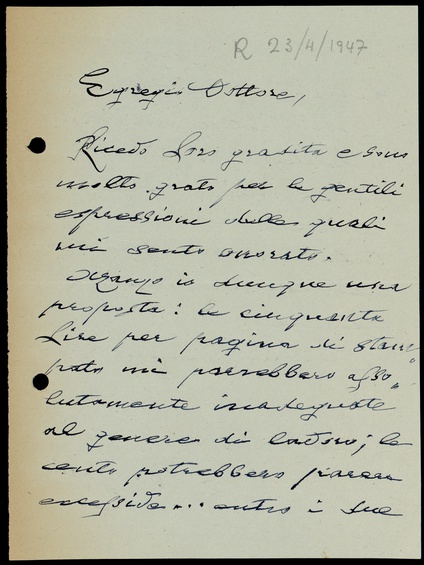 R 23/4/1947
Egregio Dottore,
Ricevo Loro gradita e sono
molto grato per le gentili
espressioni delle quali
mi sento onorato.
Avanzo io dunque una
proposta: le cinquanta
Lire per pagina di stam
pato mi parrebbero asso„
lutamente inadeguate
al genere di lavoro; le
cento potrebbero parere
eccessive... entro i due